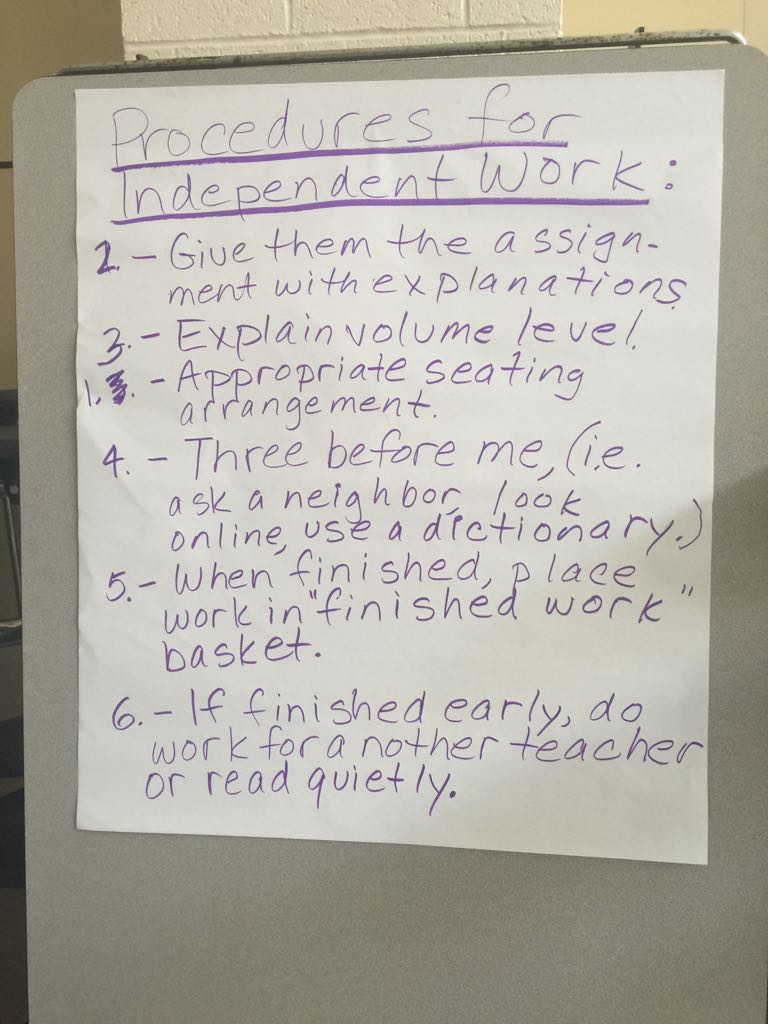 Procedures for
Independent Work:
2. - Give them the assign-
ment with explanations.
3. - Explain volume level.
1. - Appropriate seating
arrangement.
4. - Three before me, (i.e.
ask a neighbor, look
online, use a dictionary.)
5. - When finished, place
work in "finished work"
basket.
6. - If finished early, do
work for another teacher
or read quietly.